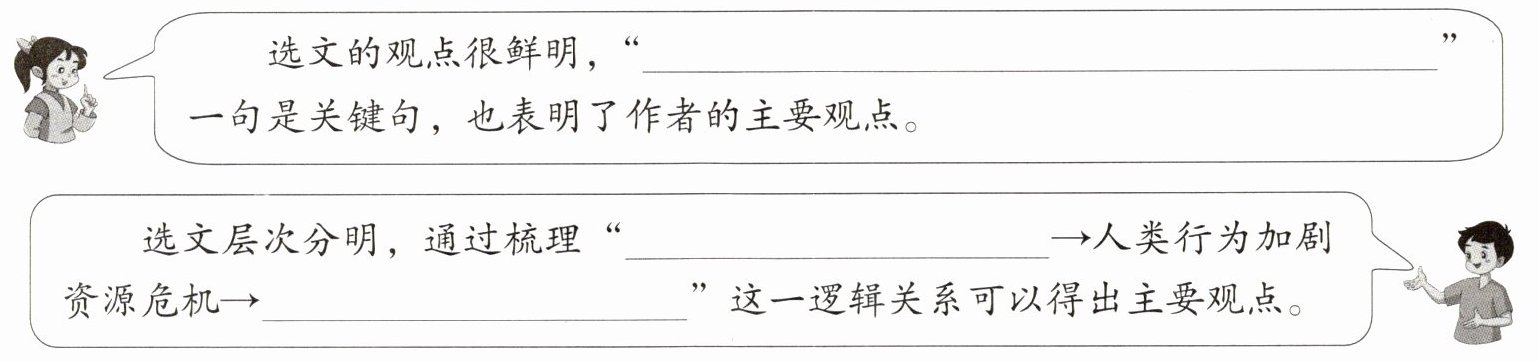 选文的观点很鲜明，“____________________”
一句是关键句，也表明了作者的主要观点。
选文层次分明，通过梳理“____________________→人类行为加剧
资源危机→____________________”这一逻辑关系可以得出主要观点。